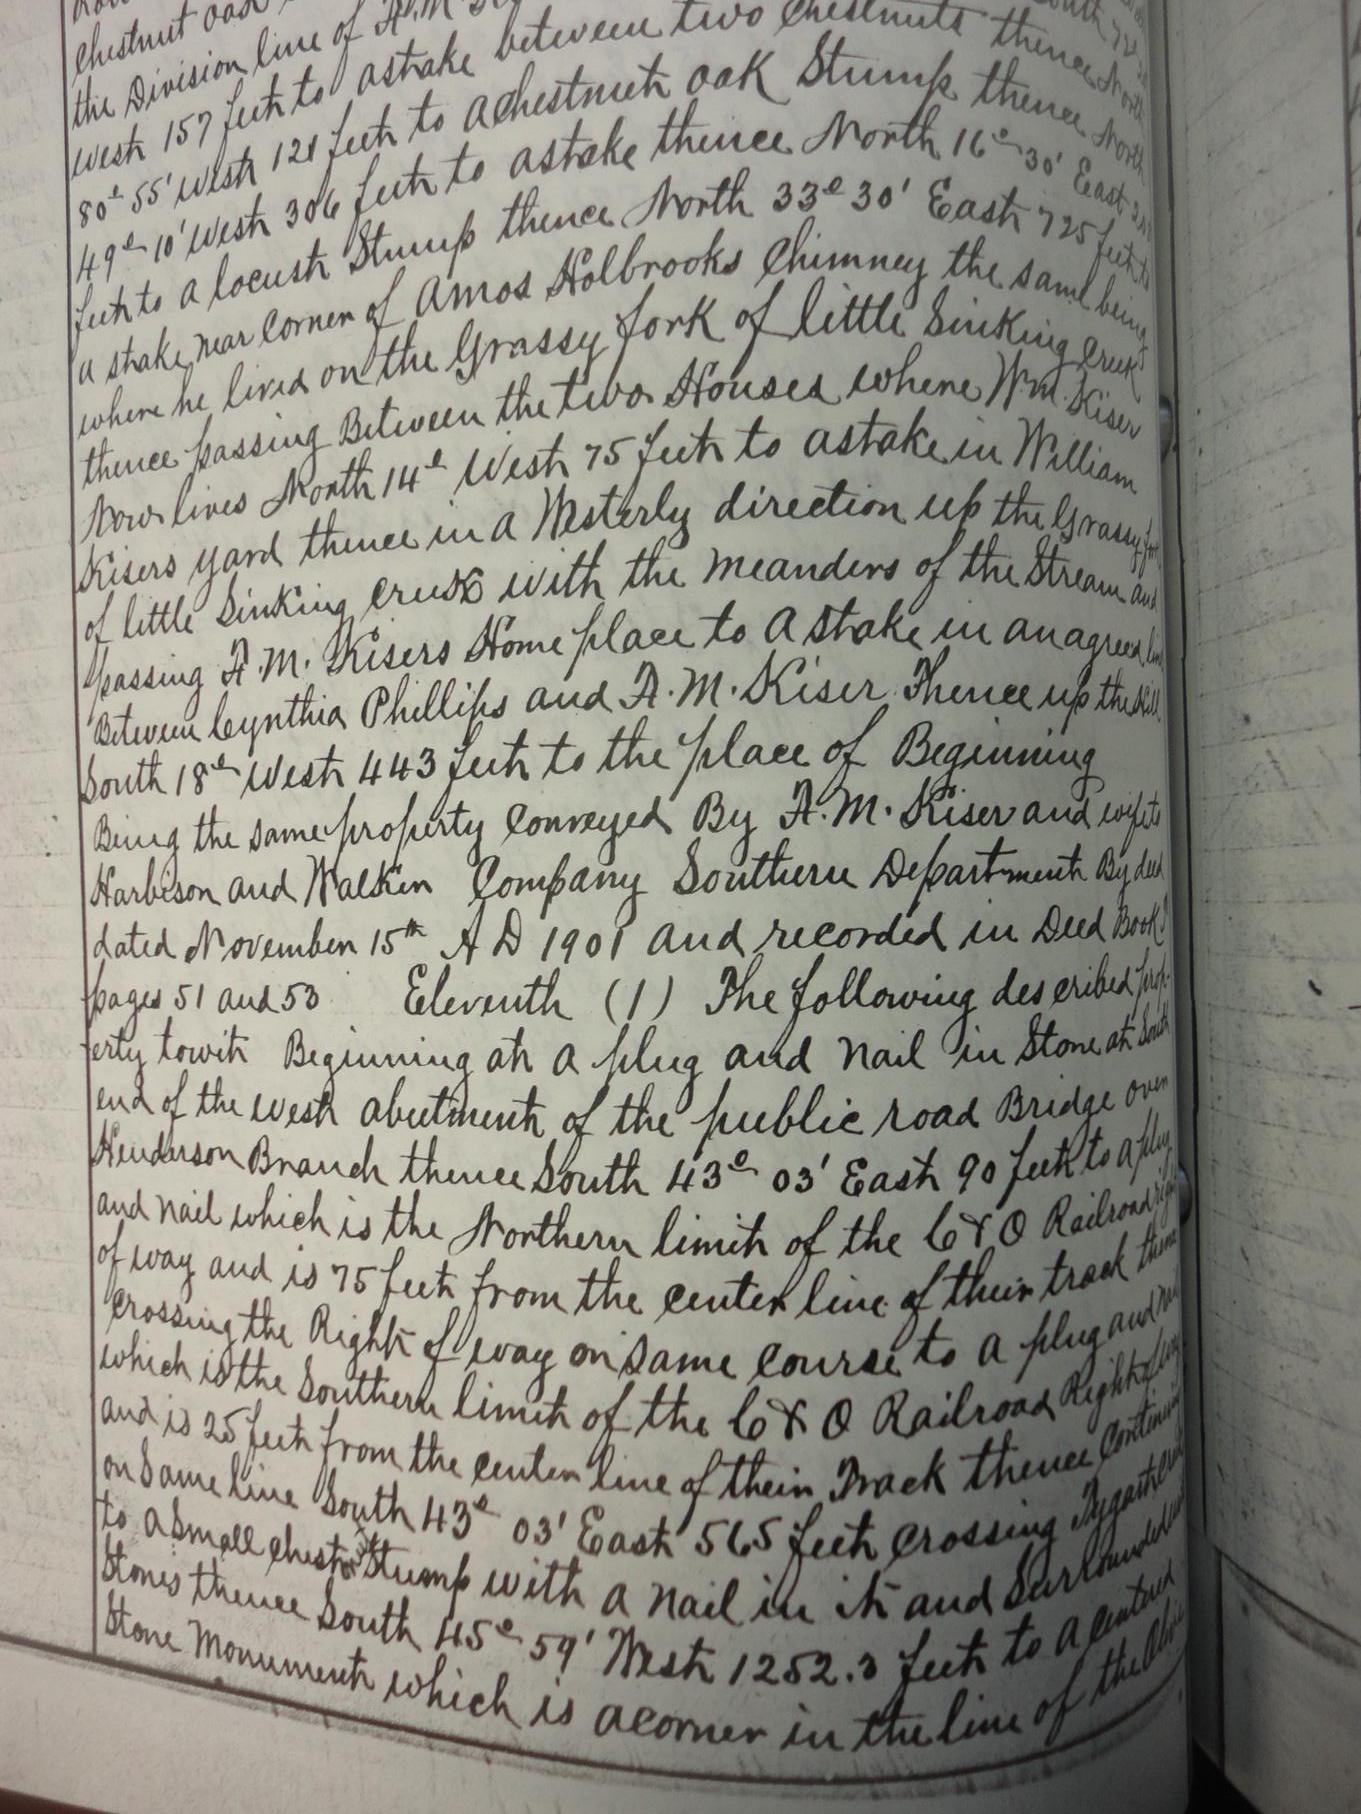 chestnut oak
the Division line of A.M.
West 157 feet to astake between two Chestnuts thence North
80° 55' West 121 feet to a Chestnut oak Stump thence North
49° 10' West 306 feet to astake thence North 16° 30' East
feet to a locust Stump thence North 33° 30' East 725 feet to
a stake near corner of Amos Holbrooks Chimney the same being
where he lived on the Grassy fork of little Sinking Creek
thence passing Between the two Houses where Wm. Kiser
Now lives North 14° West 75 feet to astake in William
Kisers yard thence in a Westerly direction up the Grassy fork
of little Sinking creek with the meanders of the Stream and
passing A.M. Kisers Home place to a stake in an agreed line
Between Cynthia Phillips and A.M. Kiser Thence up the Hill
South 18° West 443 feet to the place of Beginning
Being the same property conveyed By A.M. Kiser and wife to
Harbison and Walker Company Southern Department By deed
dated November 15th A D 1901 and recorded in Deed Book
pages 51 and 53 Eleventh (1) The following described prop-
erty towit Beginning at a plug and nail in Stone at South
end of the west abutment of the public road Bridge over
Henderson Branch thence South 43° 03' East 90 feet to a plug
and nail which is the Northern limit of the C & O Railroad right
of way and is 75 feet from the center line of their track thence
crossing the Right of way on same course to a plug and nail
which is the Southern limit of the C & O Railroad Right of way
and is 25 feet from the center line of their Track thence continuing
on same line South 43° 03' East 565 feet crossing Tygarts Creek
to a small chestnut Stump with a nail in it and Surrounded
Stones thence South 45° 59' West 1252.3 feet to a centered
Stone Monument which is acorner in the line of the